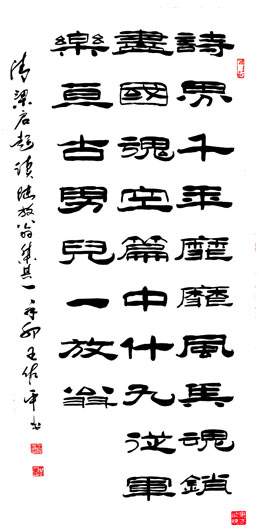 詩界千年靡靡風兵魂銷
盡國魂空篇中什九從軍
樂亘古男兒一放翁
清梁启超读陸放翁集其一辛卯王平书